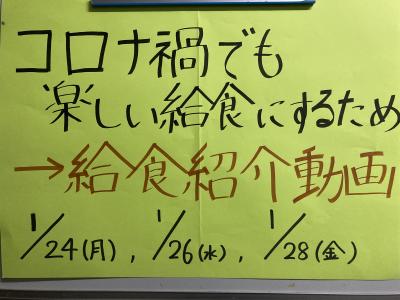 コロナ禍でも
楽しい給食にするため
→給食紹介動画
1/24(月), 1/26(水), 1/28(金)